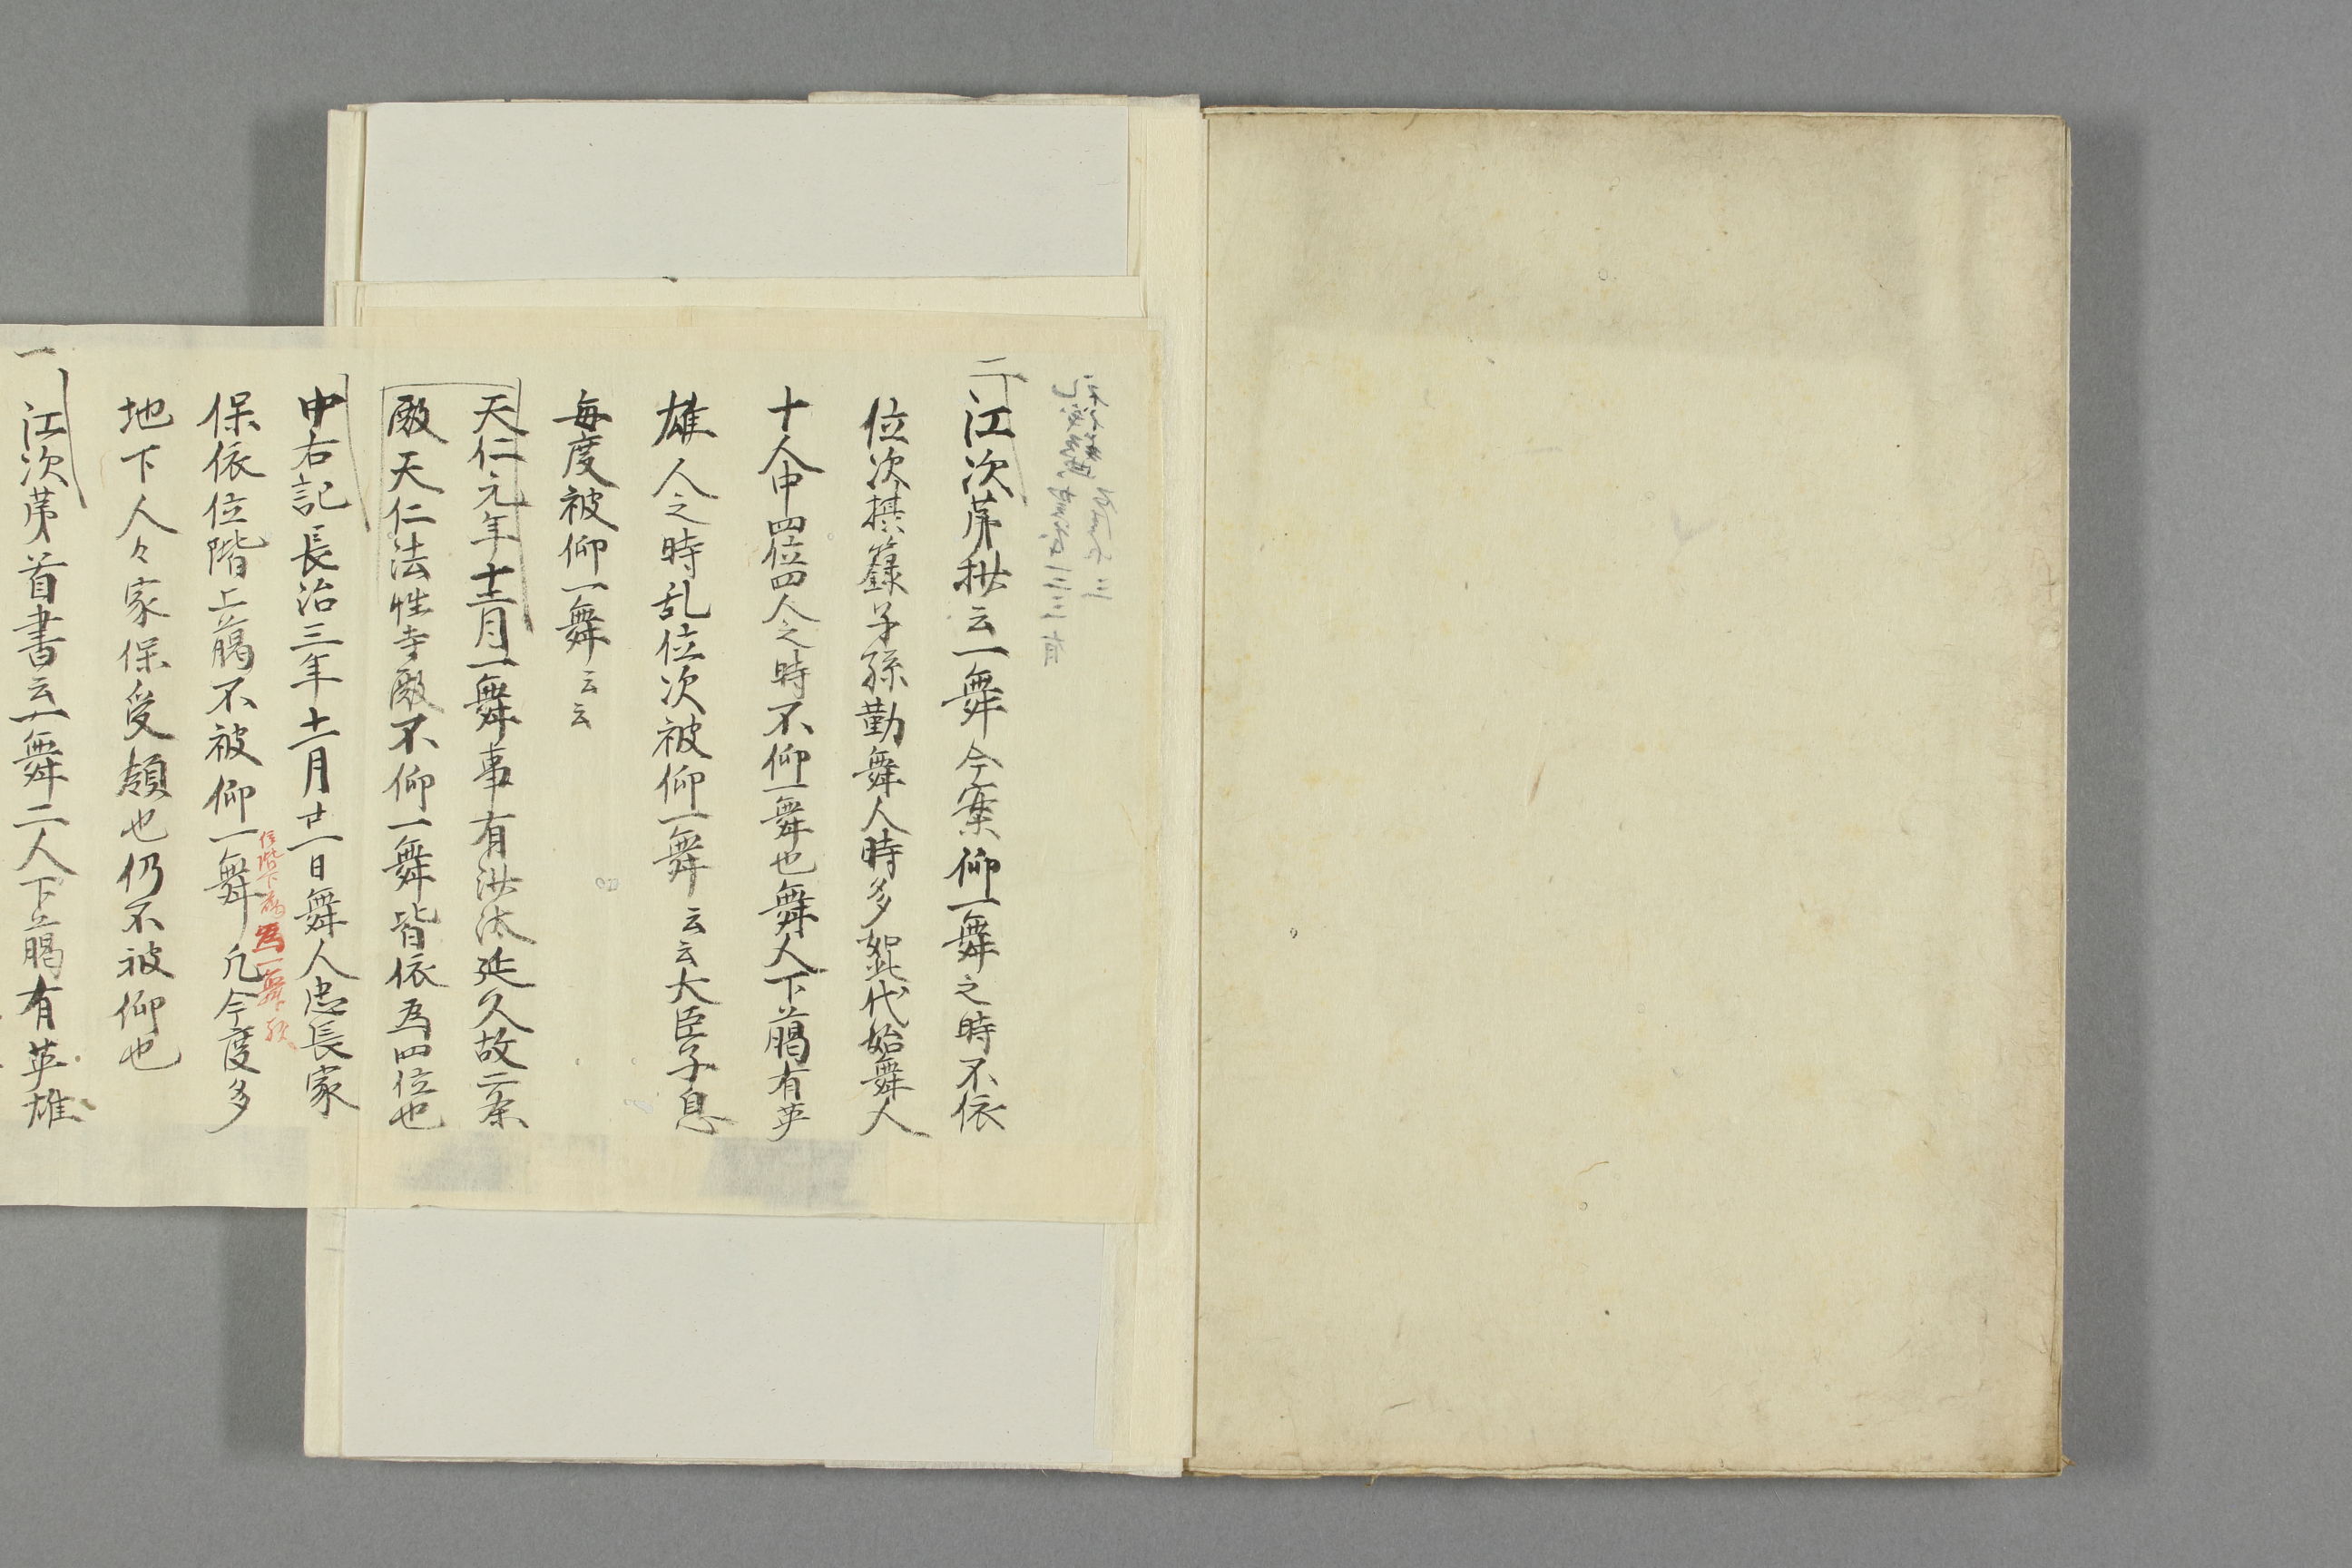 二
江次苐抄云一舞今案仰一舞之時不依
位次摂籙子孫勤舞人時多如此代始舞人
十人中四位四人之時不仰一舞也舞人下﨟有英
雄人之時乱位次被仰一舞云云大臣子息
毎度被仰一舞云云
天仁元年十二月一舞事有沙汰延久故二条
殿天仁法性寺殿不仰一舞皆依為四位也
中右記長治三年十二月廿一日舞人忠長家
保依位階上﨟不被仰一舞凡今度多
位階下﨟為一舞歟
地下人々家保受領也仍不被仰也
一
江次苐首書云一舞二人下﨟有英雄